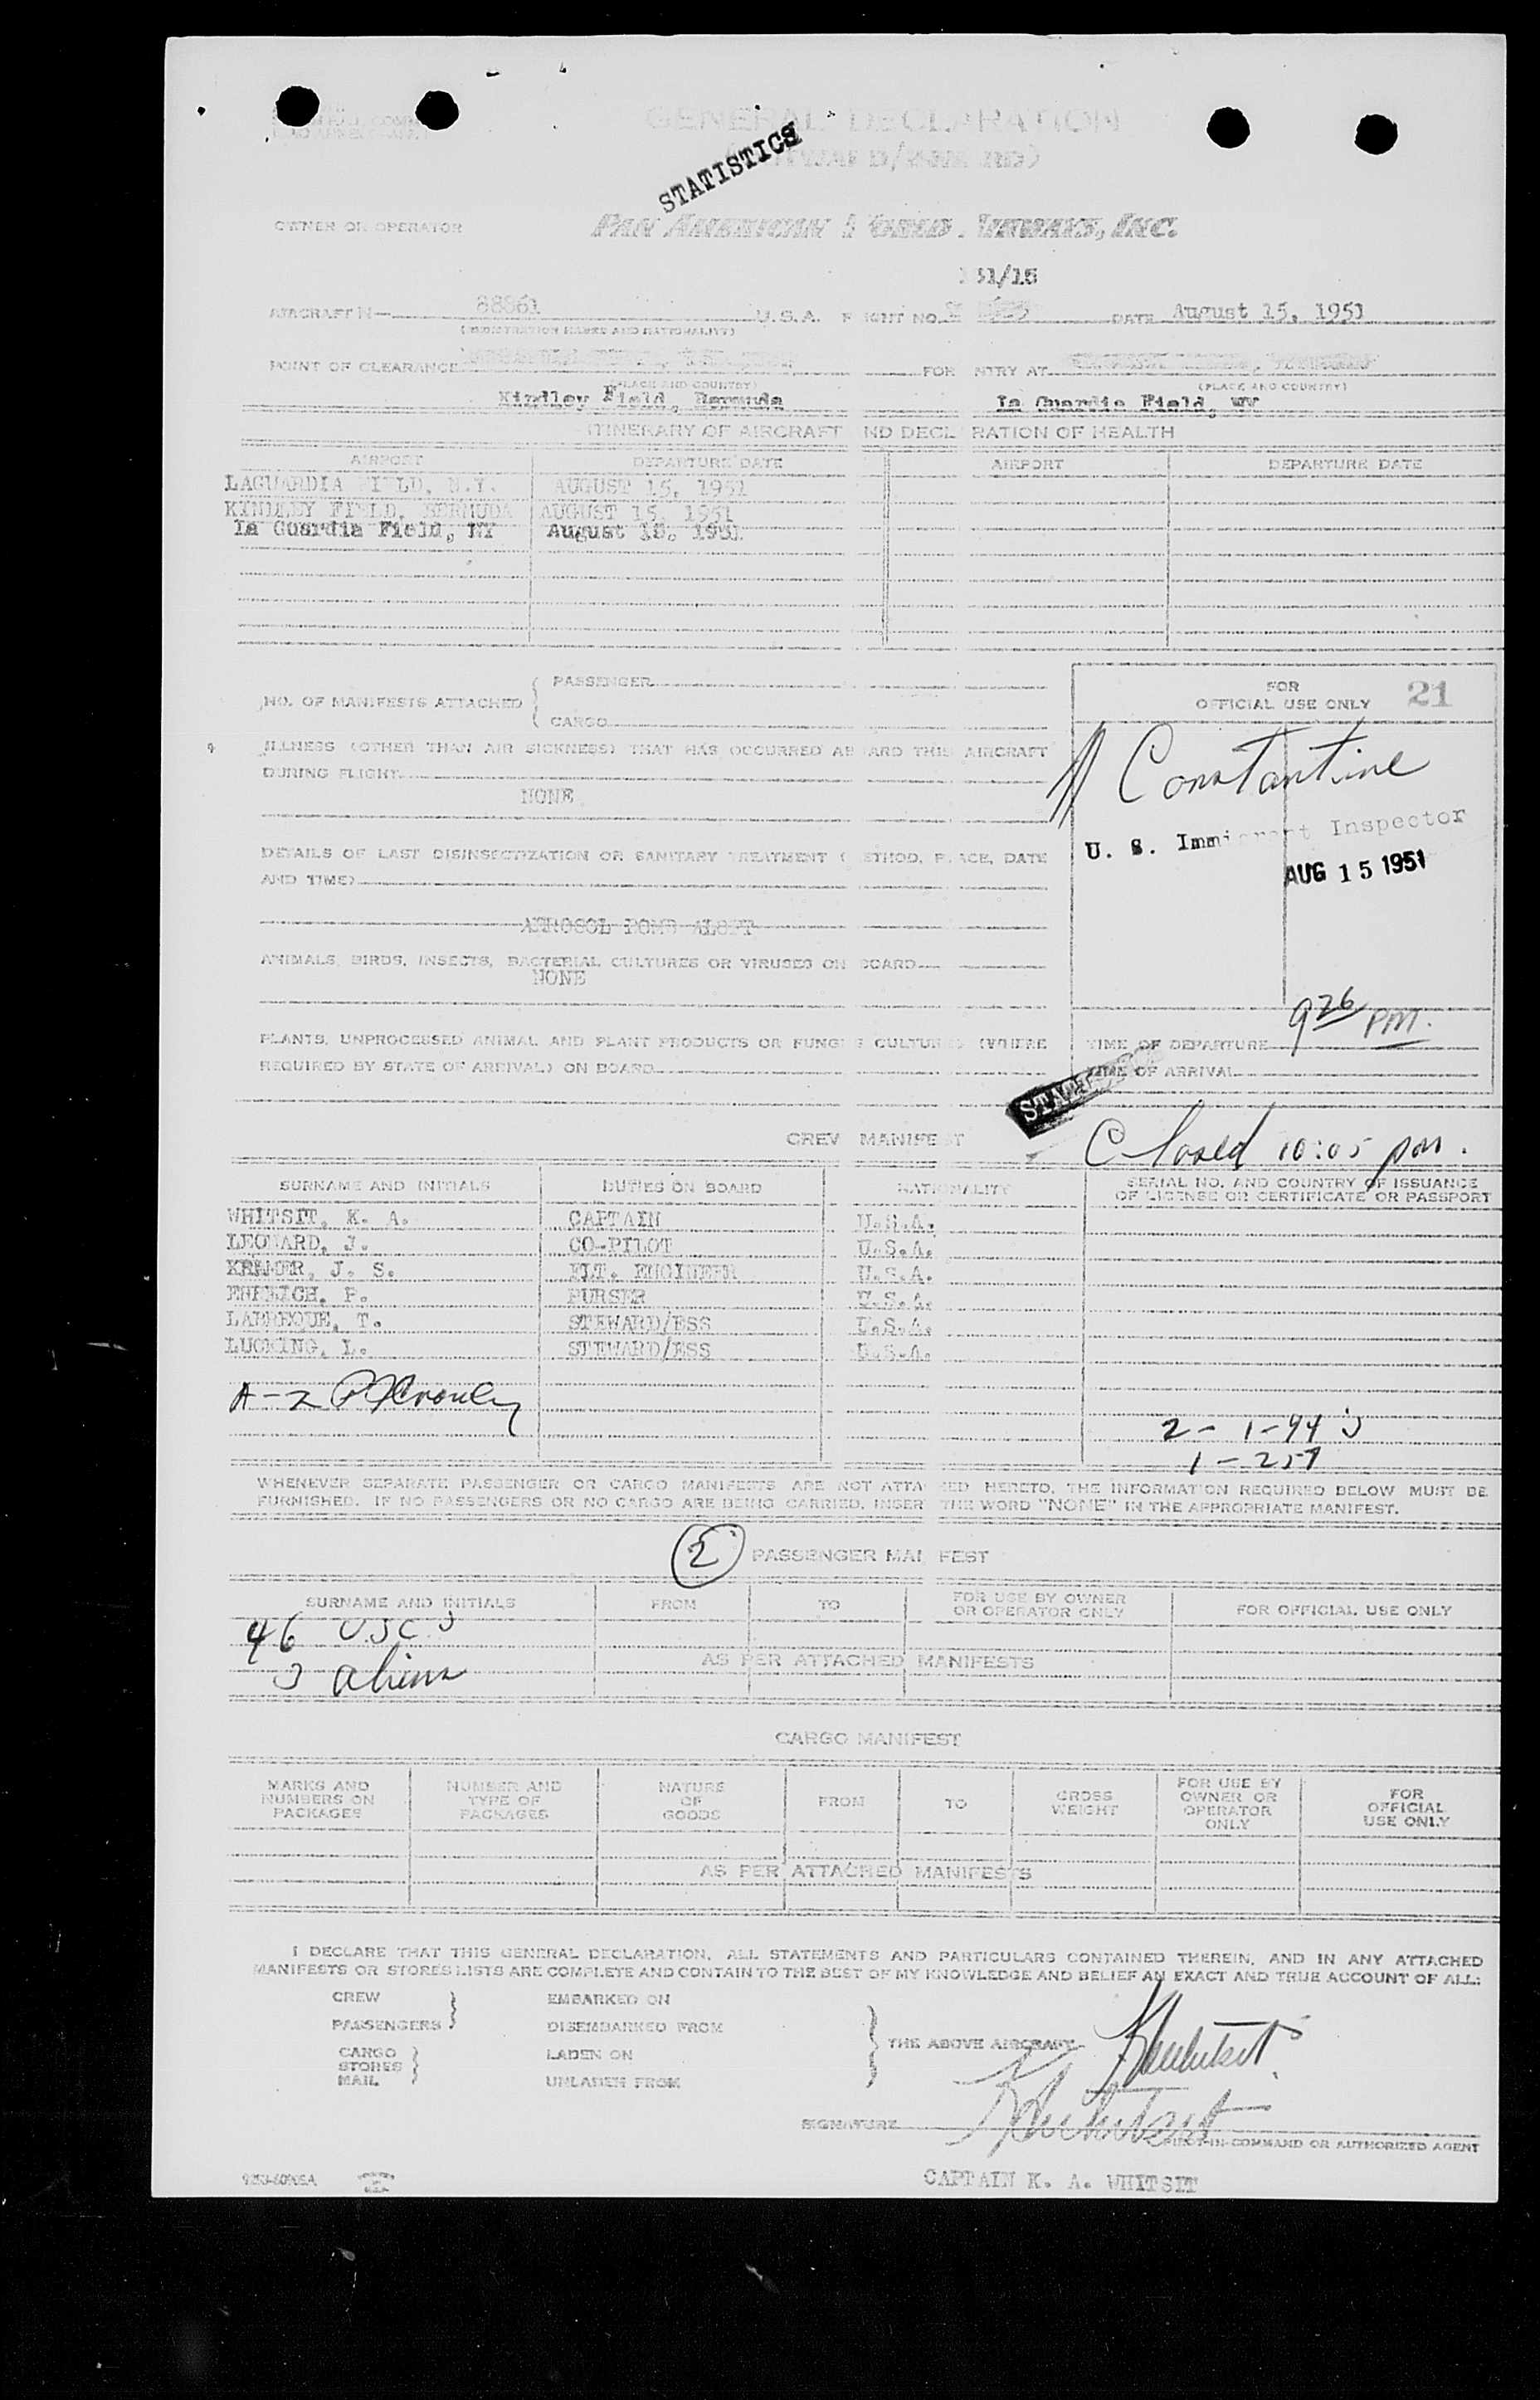 GENERAL DECLARATION
STATISTICS
OWNER OR OPERATOR
PAN AMERICAN WORLD AIRWAYS, INC.
51/15
AIRCRAFT N— 88861 U.S.A. FLIGHT NO. DATE August 15, 1951
(REGISTRATION MARKS AND NATIONALITY)
POINT OF CLEARANCE FOR ENTRY AT
(PLACE AND COUNTRY) (PLACE AND COUNTRY)
Kindley Field, Bermuda La Guardia Field, NY
ITINERARY OF AIRCRAFT AND DECLARATION OF HEALTH
AIRPORT DEPARTURE DATE AIRPORT DEPARTURE DATE
LAGUARDIA FIELD, N.Y. AUGUST 15, 1951
KINDLEY FIELD, BERMUDA AUGUST 15, 1951
La Guardia Field, NY August 15, 1951
NO. OF MANIFESTS ATTACHED { PASSENGER
CARGO
FOR
OFFICIAL USE ONLY 21
ILLNESS (OTHER THAN AIR SICKNESS) THAT HAS OCCURRED ABOARD THIS AIRCRAFT
DURING FLIGHT
NONE
Constantine
U. S. Immigrant Inspector
AUG 15 1951
DETAILS OF LAST DISINSECTIZATION OR SANITARY TREATMENT (METHOD, PLACE, DATE
AND TIME)
AEROSOL BOMB ALOFT
ANIMALS, BIRDS, INSECTS, BACTERIAL CULTURES OR VIRUSES ON BOARD
NONE
PLANTS, UNPROCESSED ANIMAL AND PLANT PRODUCTS OR FUNGUS CULTURES (WHERE
REQUIRED BY STATE OF ARRIVAL) ON BOARD
9 26 PM.
TIME OF DEPARTURE
TIME OF ARRIVAL
CREW MANIFEST
Closed 10:05 pm.
SURNAME AND INITIALS DUTIES ON BOARD NATIONALITY SERIAL NO. AND COUNTRY OF ISSUANCE
OF LICENSE OR CERTIFICATE OR PASSPORT
WHITSIT, K. A. CAPTAIN U.S.A.
LEONARD, J. CO-PILOT U.S.A.
J. S. FLT. ENGINEER U.S.A.
EHRLICH, P. PURSER U.S.A.
LABREQUE, T. STEWARD/ESS U.S.A.
LUCKING, L. STEWARD/ESS U.S.A.
A-2
2 - 1-94's
1 - 257
WHENEVER SEPARATE PASSENGER OR CARGO MANIFESTS ARE NOT ATTACHED HERETO, THE INFORMATION REQUIRED BELOW MUST BE
FURNISHED. IF NO PASSENGERS OR NO CARGO ARE BEING CARRIED, INSERT THE WORD "NONE" IN THE APPROPRIATE MANIFEST.
2 PASSENGER MANIFEST
SURNAME AND INITIALS FROM TO FOR USE BY OWNER
OR OPERATOR ONLY FOR OFFICIAL USE ONLY
46 USC's
aliens
AS PER ATTACHED MANIFESTS
CARGO MANIFEST
MARKS AND
NUMBERS ON
PACKAGES
NUMBER AND
TYPE OF
PACKAGES
NATURE
OF
GOODS
FROM
TO
GROSS
WEIGHT
FOR USE BY
OWNER OR
OPERATOR
ONLY
FOR
OFFICIAL
USE ONLY
AS PER ATTACHED MANIFESTS
I DECLARE THAT THIS GENERAL DECLARATION, ALL STATEMENTS AND PARTICULARS CONTAINED THEREIN, AND IN ANY ATTACHED
MANIFESTS OR STORES LISTS ARE COMPLETE AND CONTAIN TO THE BEST OF MY KNOWLEDGE AND BELIEF AN EXACT AND TRUE ACCOUNT OF ALL:
CREW EMBARKED ON
PASSENGERS DISEMBARKED FROM
CARGO LADEN ON
STORES
MAIL UNLADEN FROM
THE ABOVE AIRCRAFT
KAWhitsit
KAWhitsit
SIGNATURE
PILOT-IN-COMMAND OR AUTHORIZED AGENT
CAPTAIN K. A. WHITSIT